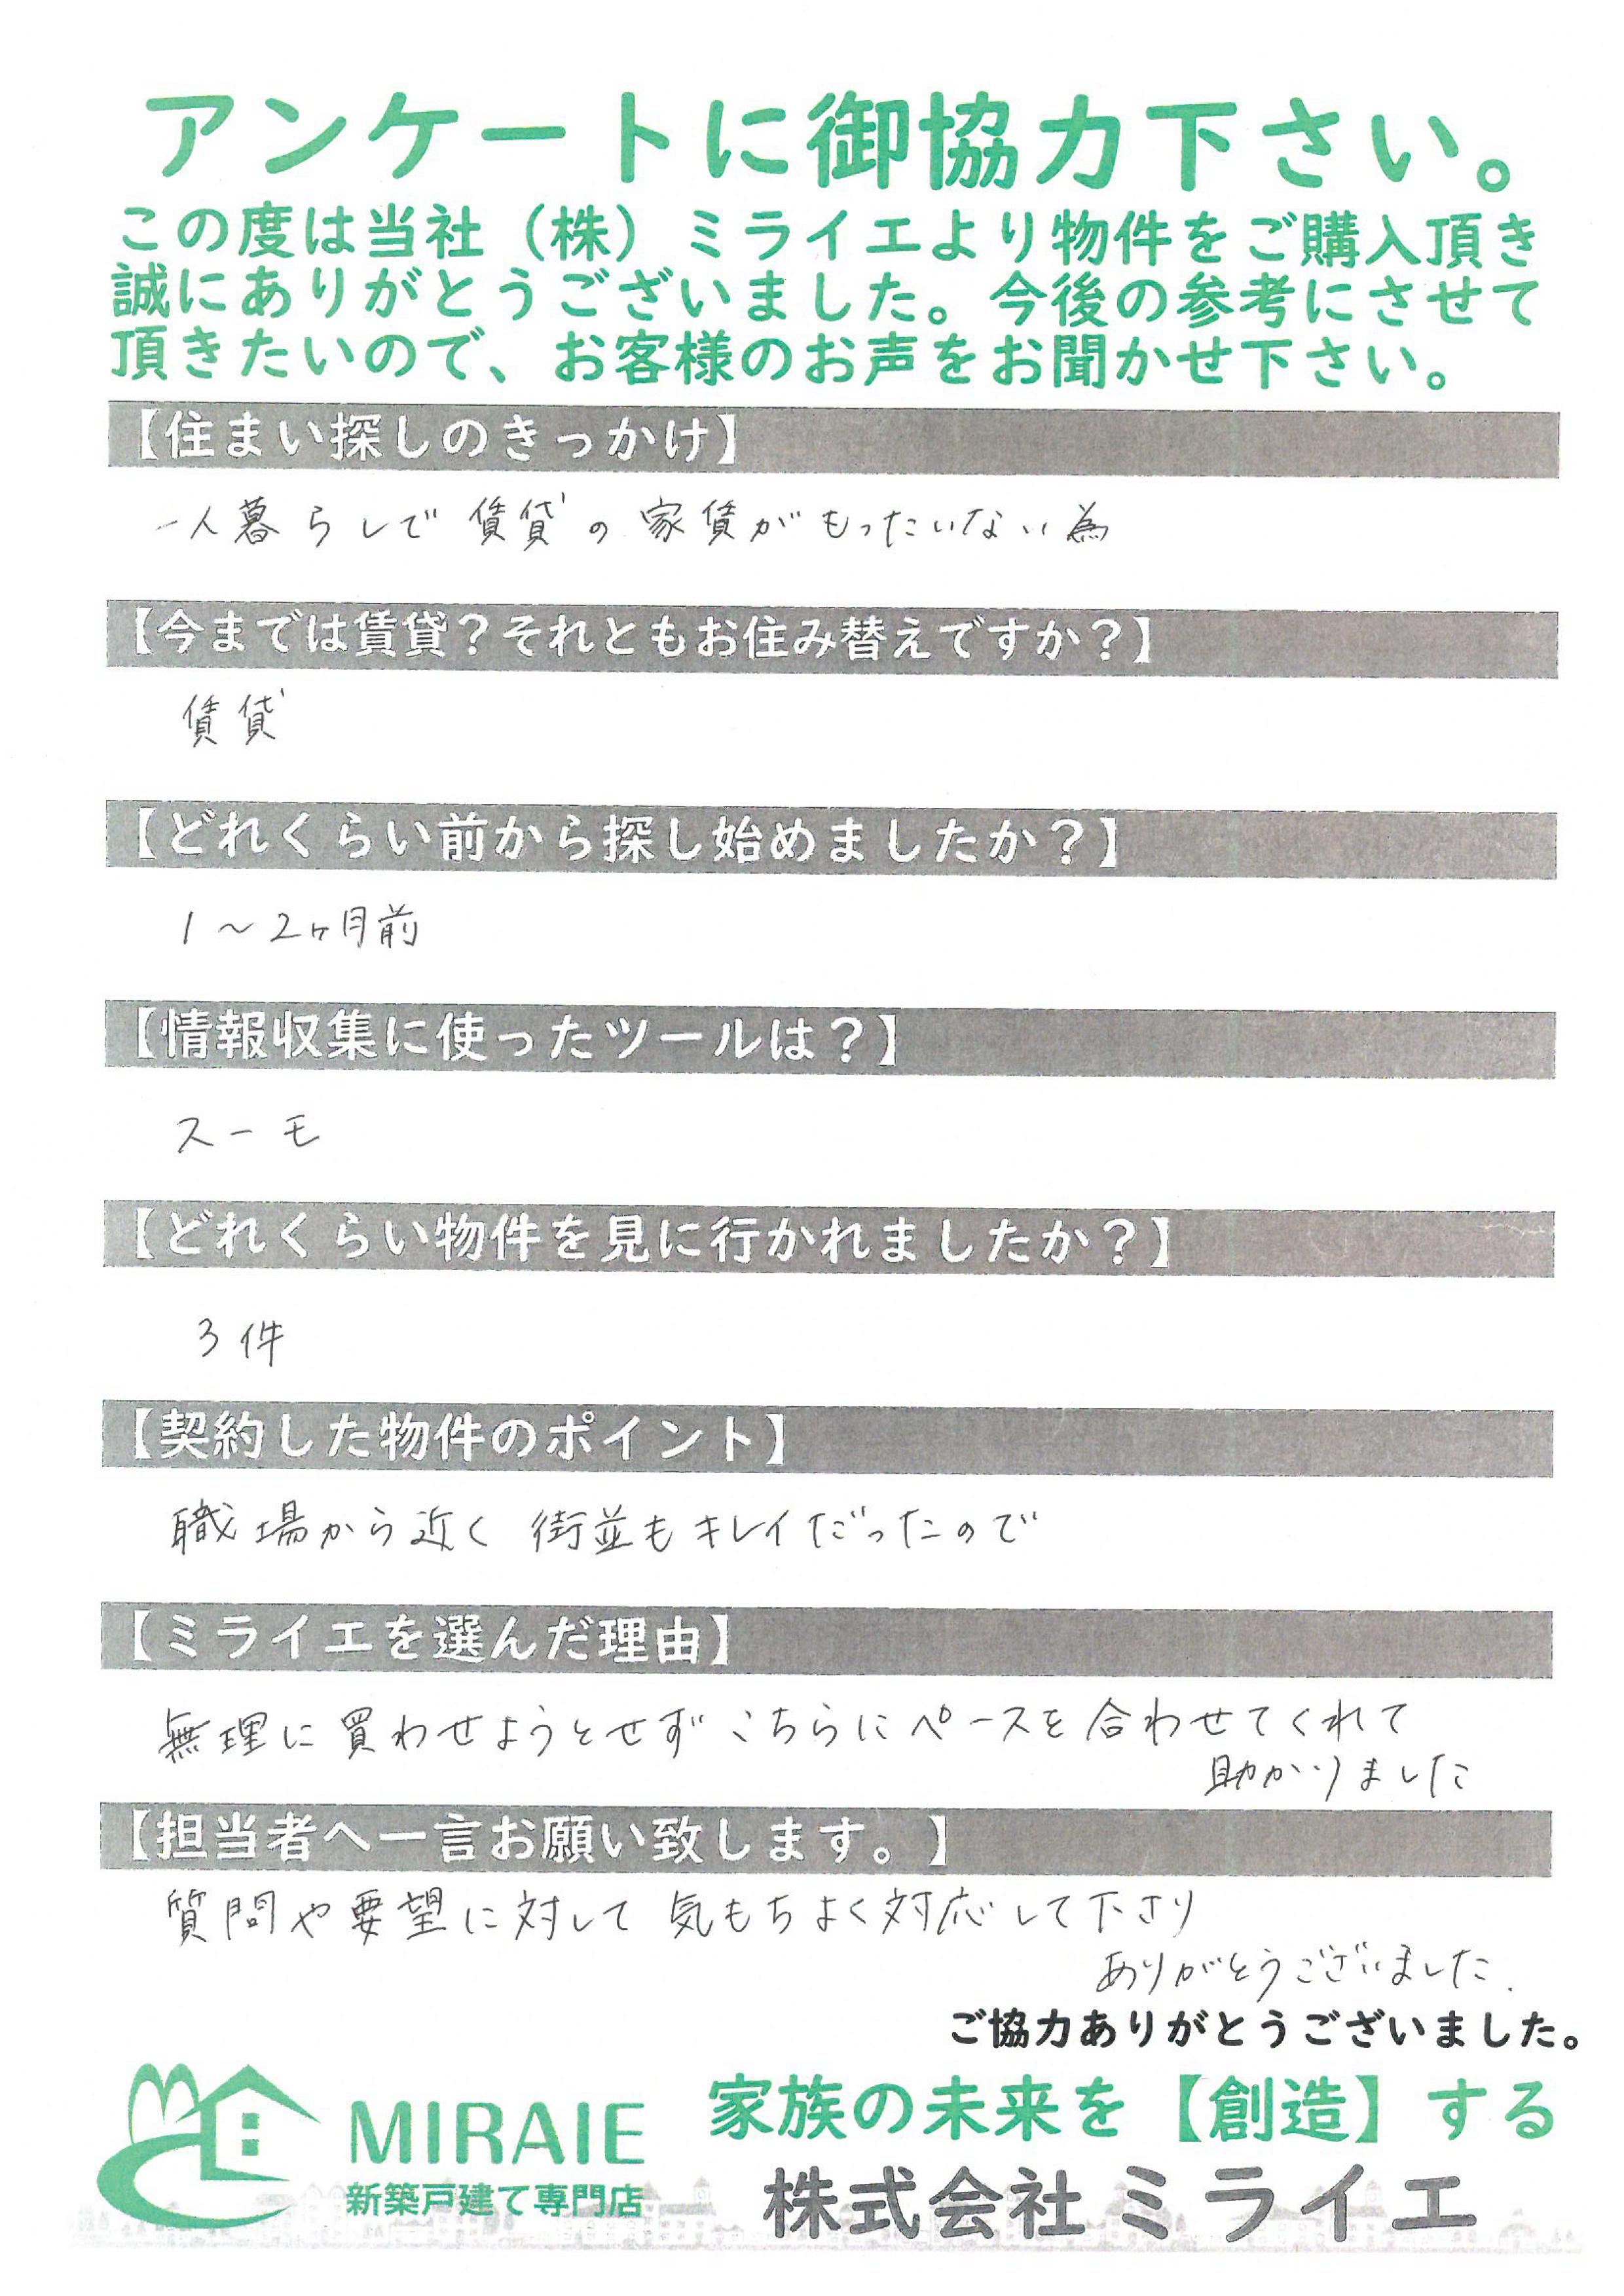 アンケートに御協力下さい。
この度は当社（株）ミライエより物件をご購入頂き
誠にありがとうございました。今後の参考にさせて
頂きたいので、お客様のお声をお聞かせ下さい。
【住まい探しのきっかけ】
一人暮らしで賃貸の家賃がもったいない為
【今までは賃貸？それともお住み替えですか？】
賃貸
【どれくらい前から探し始めましたか？】
1～2ヶ月前
【情報収集に使ったツールは？】
スーモ
【どれくらい物件を見に行かれましたか？】
3件
【契約した物件のポイント】
職場から近く 街並もキレイだったので
【ミライエを選んだ理由】
無理に買わせようとせずこちらにペースを合わせてくれて
助かりました
【担当者へ一言お願い致します。】
質問や要望に対して気もちよく対応して下さり
ありがとうございました.
ご協力ありがとうございました。
家族の未来を【創造】する
MIRAIE
新築戸建て専門店
株式会社ミライエ